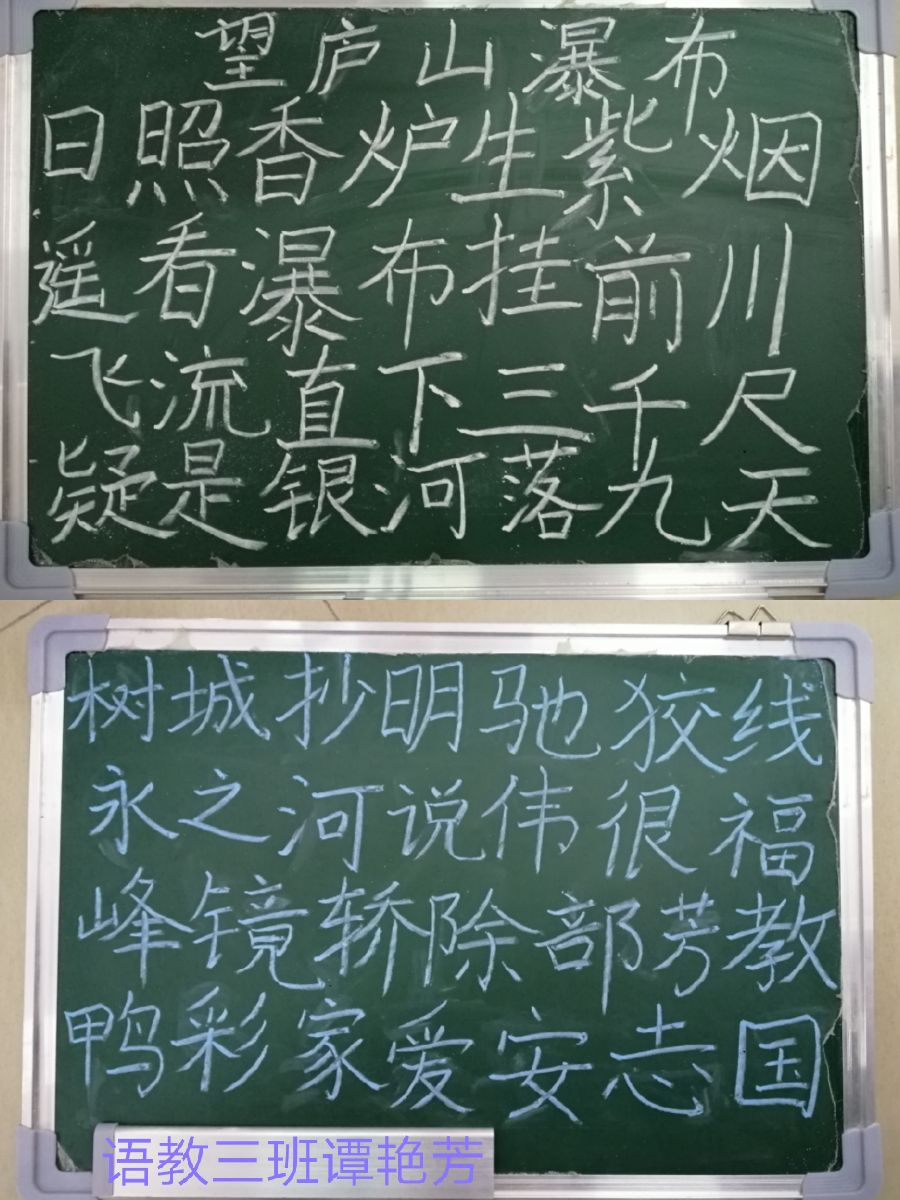 望庐山瀑布
日照香炉生紫烟
遥看瀑布挂前川
飞流直下三千尺
疑是银河落九天
树城抄明驰狡线
永之河说伟很福
峰镜轿除部芳教
鸭彩家爱安志国
语教三班谭艳芳